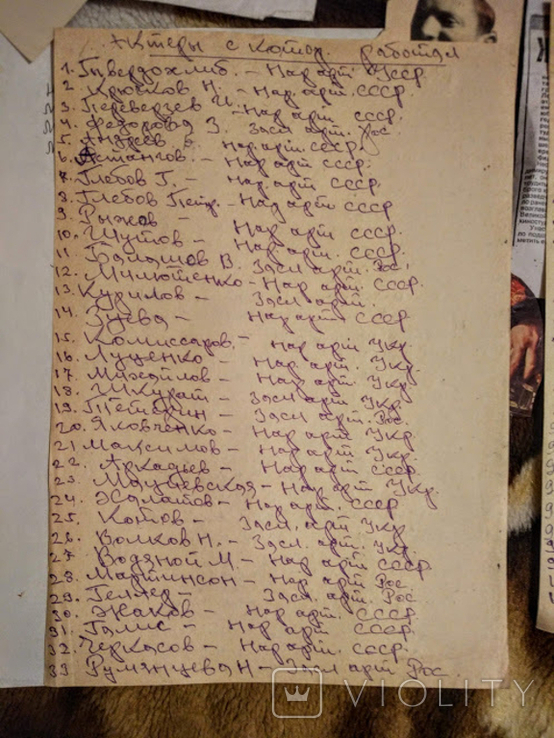 Актеры с котор. работал
1. Твердохлиб. - Нар арт. Усср.
2. Крючков Н. - Нар. арт. СССР
3. Переверзев И. - Нар арт СССР.
4. Федорова З. Засл. арт. Рос.
5. Андреев Б. Нар. арт. СССР.
6. Астангов. - Нар арт СССР.
7. Глебов Г. - Нар арт СССР.
8. Глебов Петр. - Нар арт СССР
9. Рыжов -
10. Шутов - Нар арт СССР.
11. Балашов В. Нар арт. СССР. Засл арт. Рос.
12. Милютенко - Нар. арт. СССР.
13. Курилов - Засл арт.
14. Зуева - Нар арт СССР.
15. Комиссаров. - Нар арт. Укр.
16. Луценко - Нар арт. Укр.
17. Михайлов - Нар арт. Укр.
18. Шкурат - Засл арт Укр.
19. - Засл арт. Рос.
20. Яковченко - Нар арт Укр
21 Максимов - Нар арт. Укр.
22. Аркадьев - Нар арт СССР.
23. - Нар арт Укр.
24. - Нар арт. СССР
25. Котов - Засл. арт Укр
26. Волков Н. - Засл. арт. Укр.
27. Водяной М. - Нар арт СССР.
28. Мартинсон - Нар арт Рос
29. Засл. арт. Рос
30. Жаков - Нар арт. СССР
31. - Нар арт СССР.
32. Черкасов - Нар арт. СССР.
33 Румянцева Н - Засл арт Рос.
VIOLITY